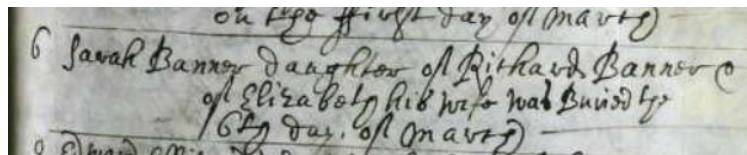 on the ffirst day of March
6 Sarah Banner daughter of Richard Banner &
of Elizabeth his wife was Buried the
6th day of March
Edward